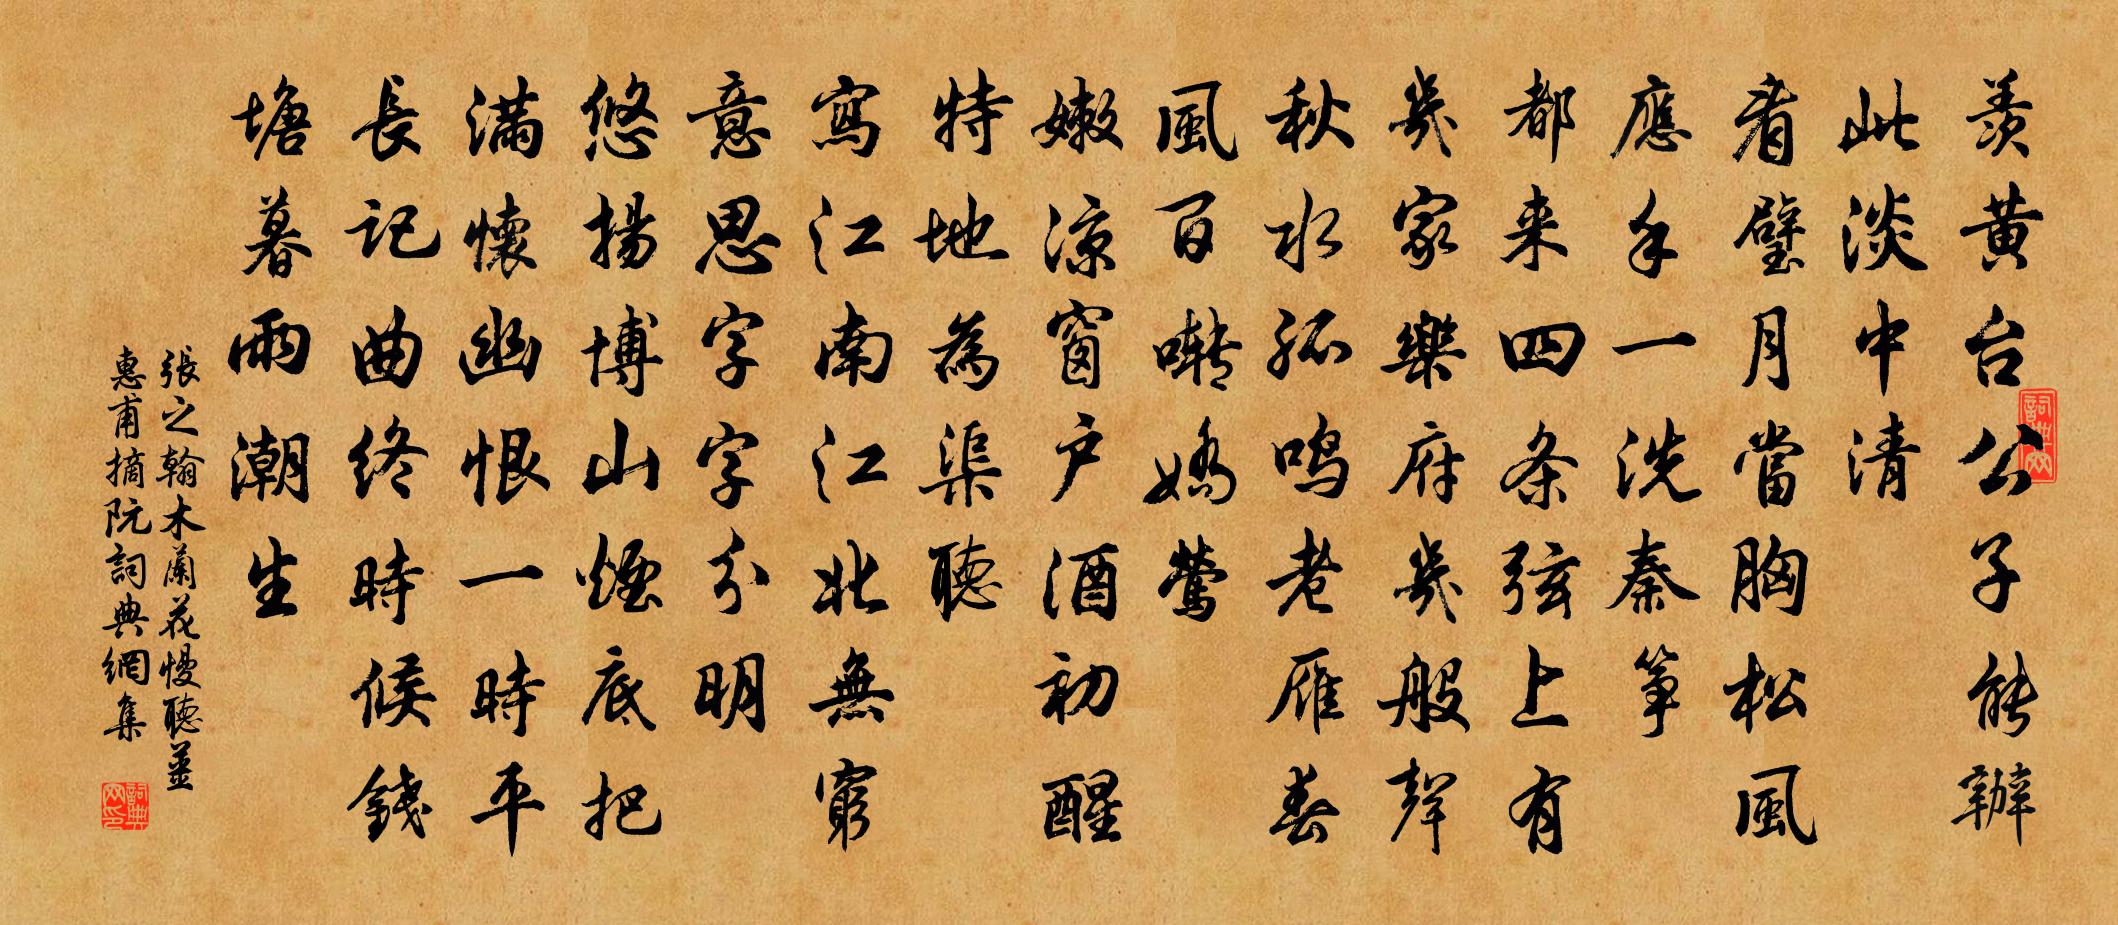 羨黄台公子能辦
此淡中清
看璧月當胸松風
應手一洗秦箏
都来四条弦上有
幾家樂府幾般聲
秋水孤鳴老雁春
風百囀嬌鶯
嫩涼窗户酒初醒
特地為渠聽
寫江南江北無窮
意思字字分明
悠揚博山煙底把
滿懷幽恨一時平
長記曲终時候錢
塘暮雨潮生
張之翰木蘭花慢聽姜
惠甫摘阮詞典網集
詞典网
詞典网印